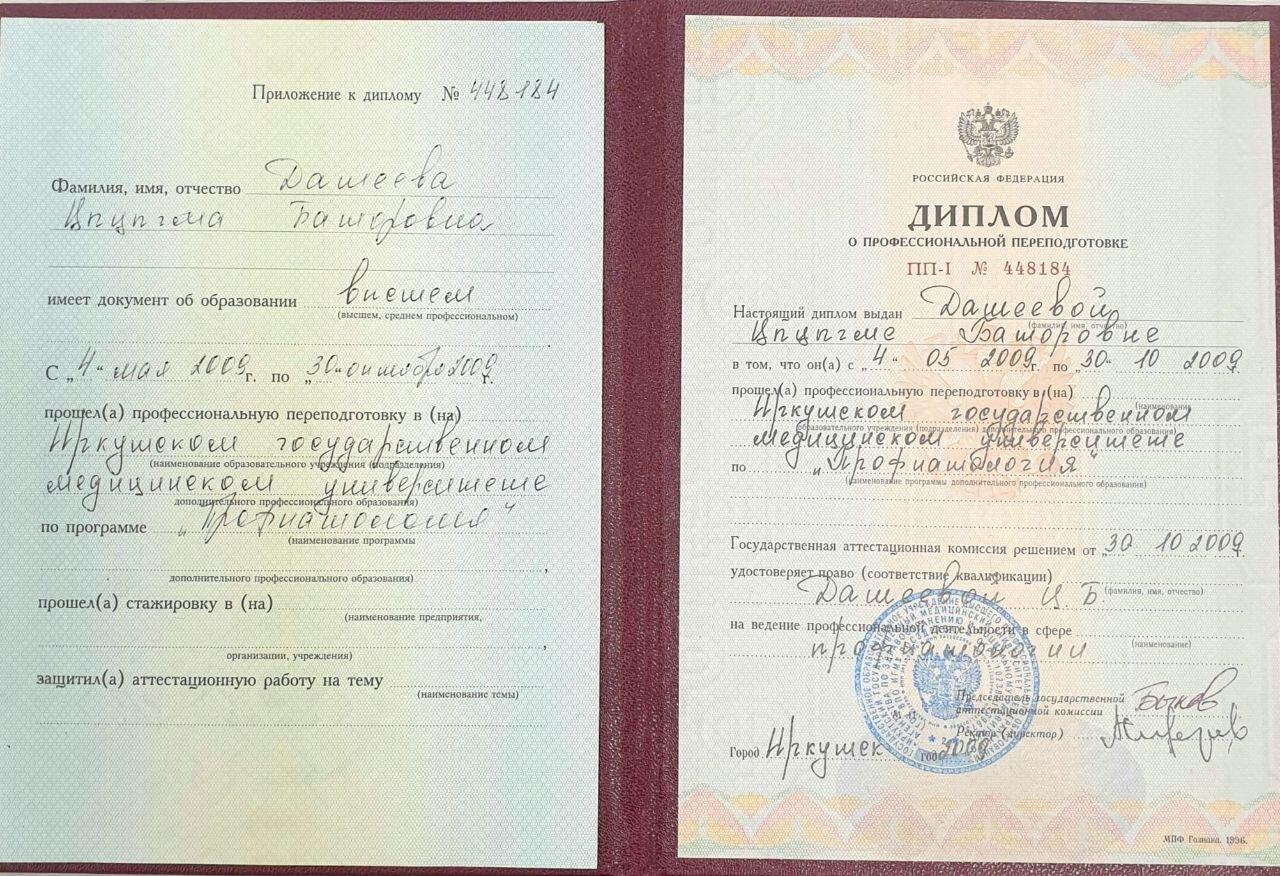 Приложение к диплому № 448184
Фамилия, имя, отчество Дашеева
Цыцыгма Баторовна
имеет документ об образовании высшем
(высшем, среднем профессиональном)
С „4“ мая 2009 г. по „30“ октября 2009 г.
прошел(а) профессиональную переподготовку в (на)
Иркутском государственном
(наименование образовательного учреждения (подразделения)
медицинском университете
дополнительного профессионального образования)
по программе „Профпатология“
(наименование программы
дополнительного профессионального образования)
прошел(а) стажировку в (на)
(наименование предприятия,
организации, учреждения)
защитил(а) аттестационную работу на тему
(наименование темы)
РОССИЙСКАЯ ФЕДЕРАЦИЯ
ДИПЛОМ
О ПРОФЕССИОНАЛЬНОЙ ПЕРЕПОДГОТОВКЕ
ПП-I № 448184
Настоящий диплом выдан Дашеевой
(фамилия, имя, отчество)
Цыцыгме Баторовне
в том, что он(а) с „4“ 05 2009 г. по „30“ 10 2009
прошел(а) профессиональную переподготовку в (на) в
(наименование
Иркутском государственном
образовательного учреждения (подразделения) дополнительного профессионального образования)
медицинском университете
по „Профпатология“
(наименование программы дополнительного профессионального образования)
Государственная аттестационная комиссия решением от „30 10 2009
удостоверяет право (соответствие квалификации)
Дашеевой Ц. Б. (фамилия, имя, отчество)
на ведение профессиональной деятельности в сфере
(наименование)
профпатологии
Председатель государственной
аттестационной комиссии Быков
Ректор (директор)
Город Иркутск год 2009
МПФ Гознака. 1996.